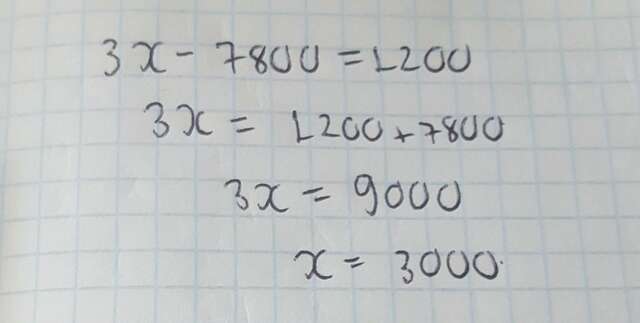 3x - 7800 = 1200
3x = 1200 + 7800
3x = 9000
x = 3000.